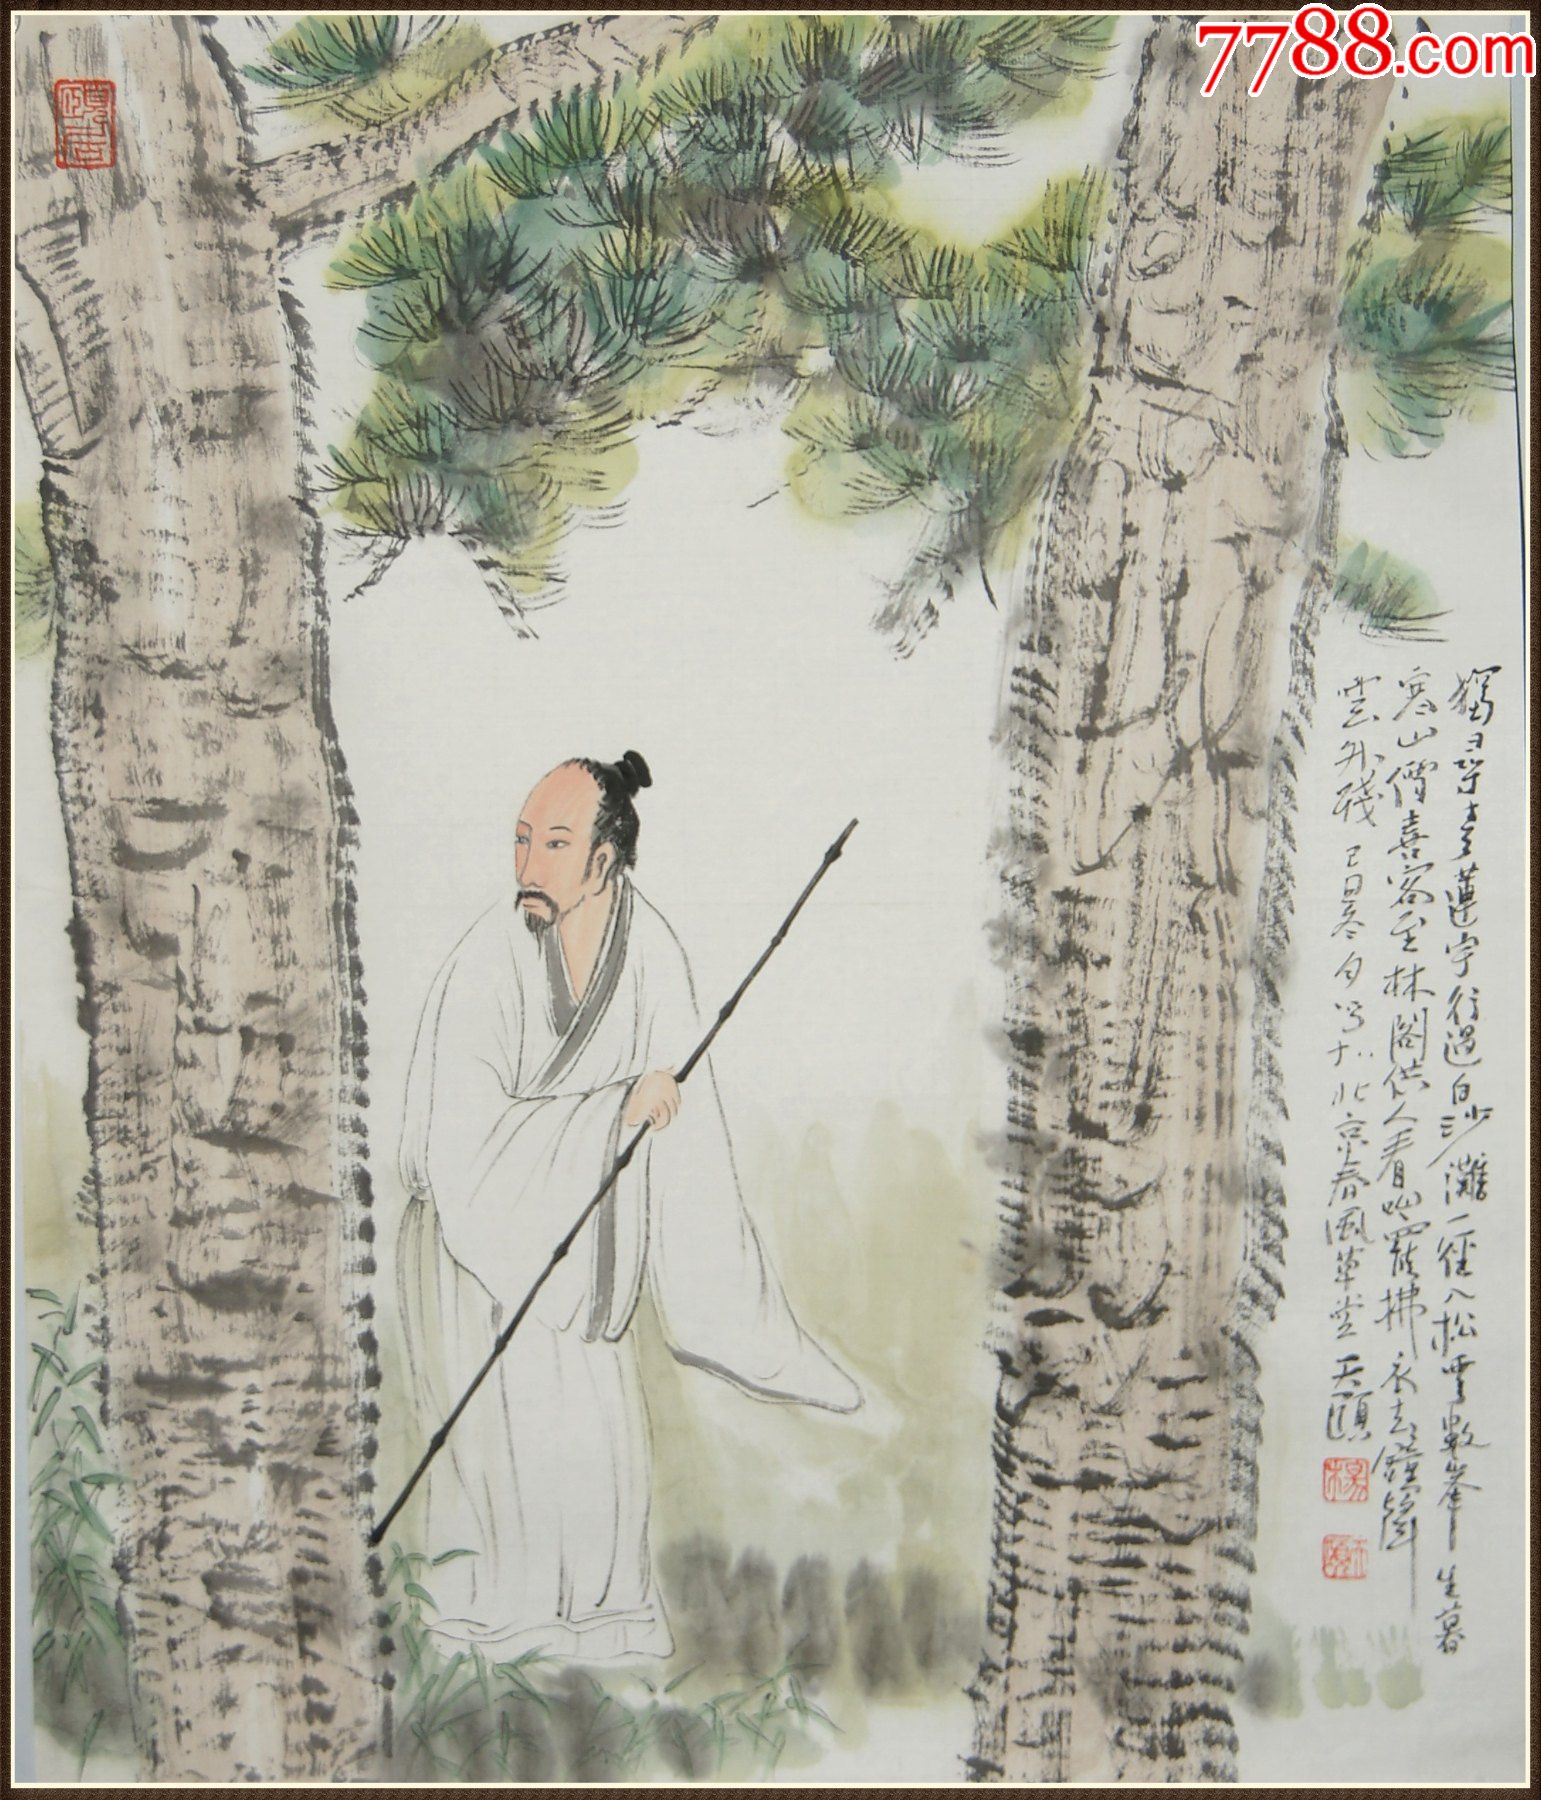 7788.com
獨尋青蓮宇行過白沙灘一徑入松雪數峯生暮
寒山僧喜客至林閣供人看吟罷拂衣去鐘聲
雲外殘 己丑冬月写于北京春風草堂 天頤
楊